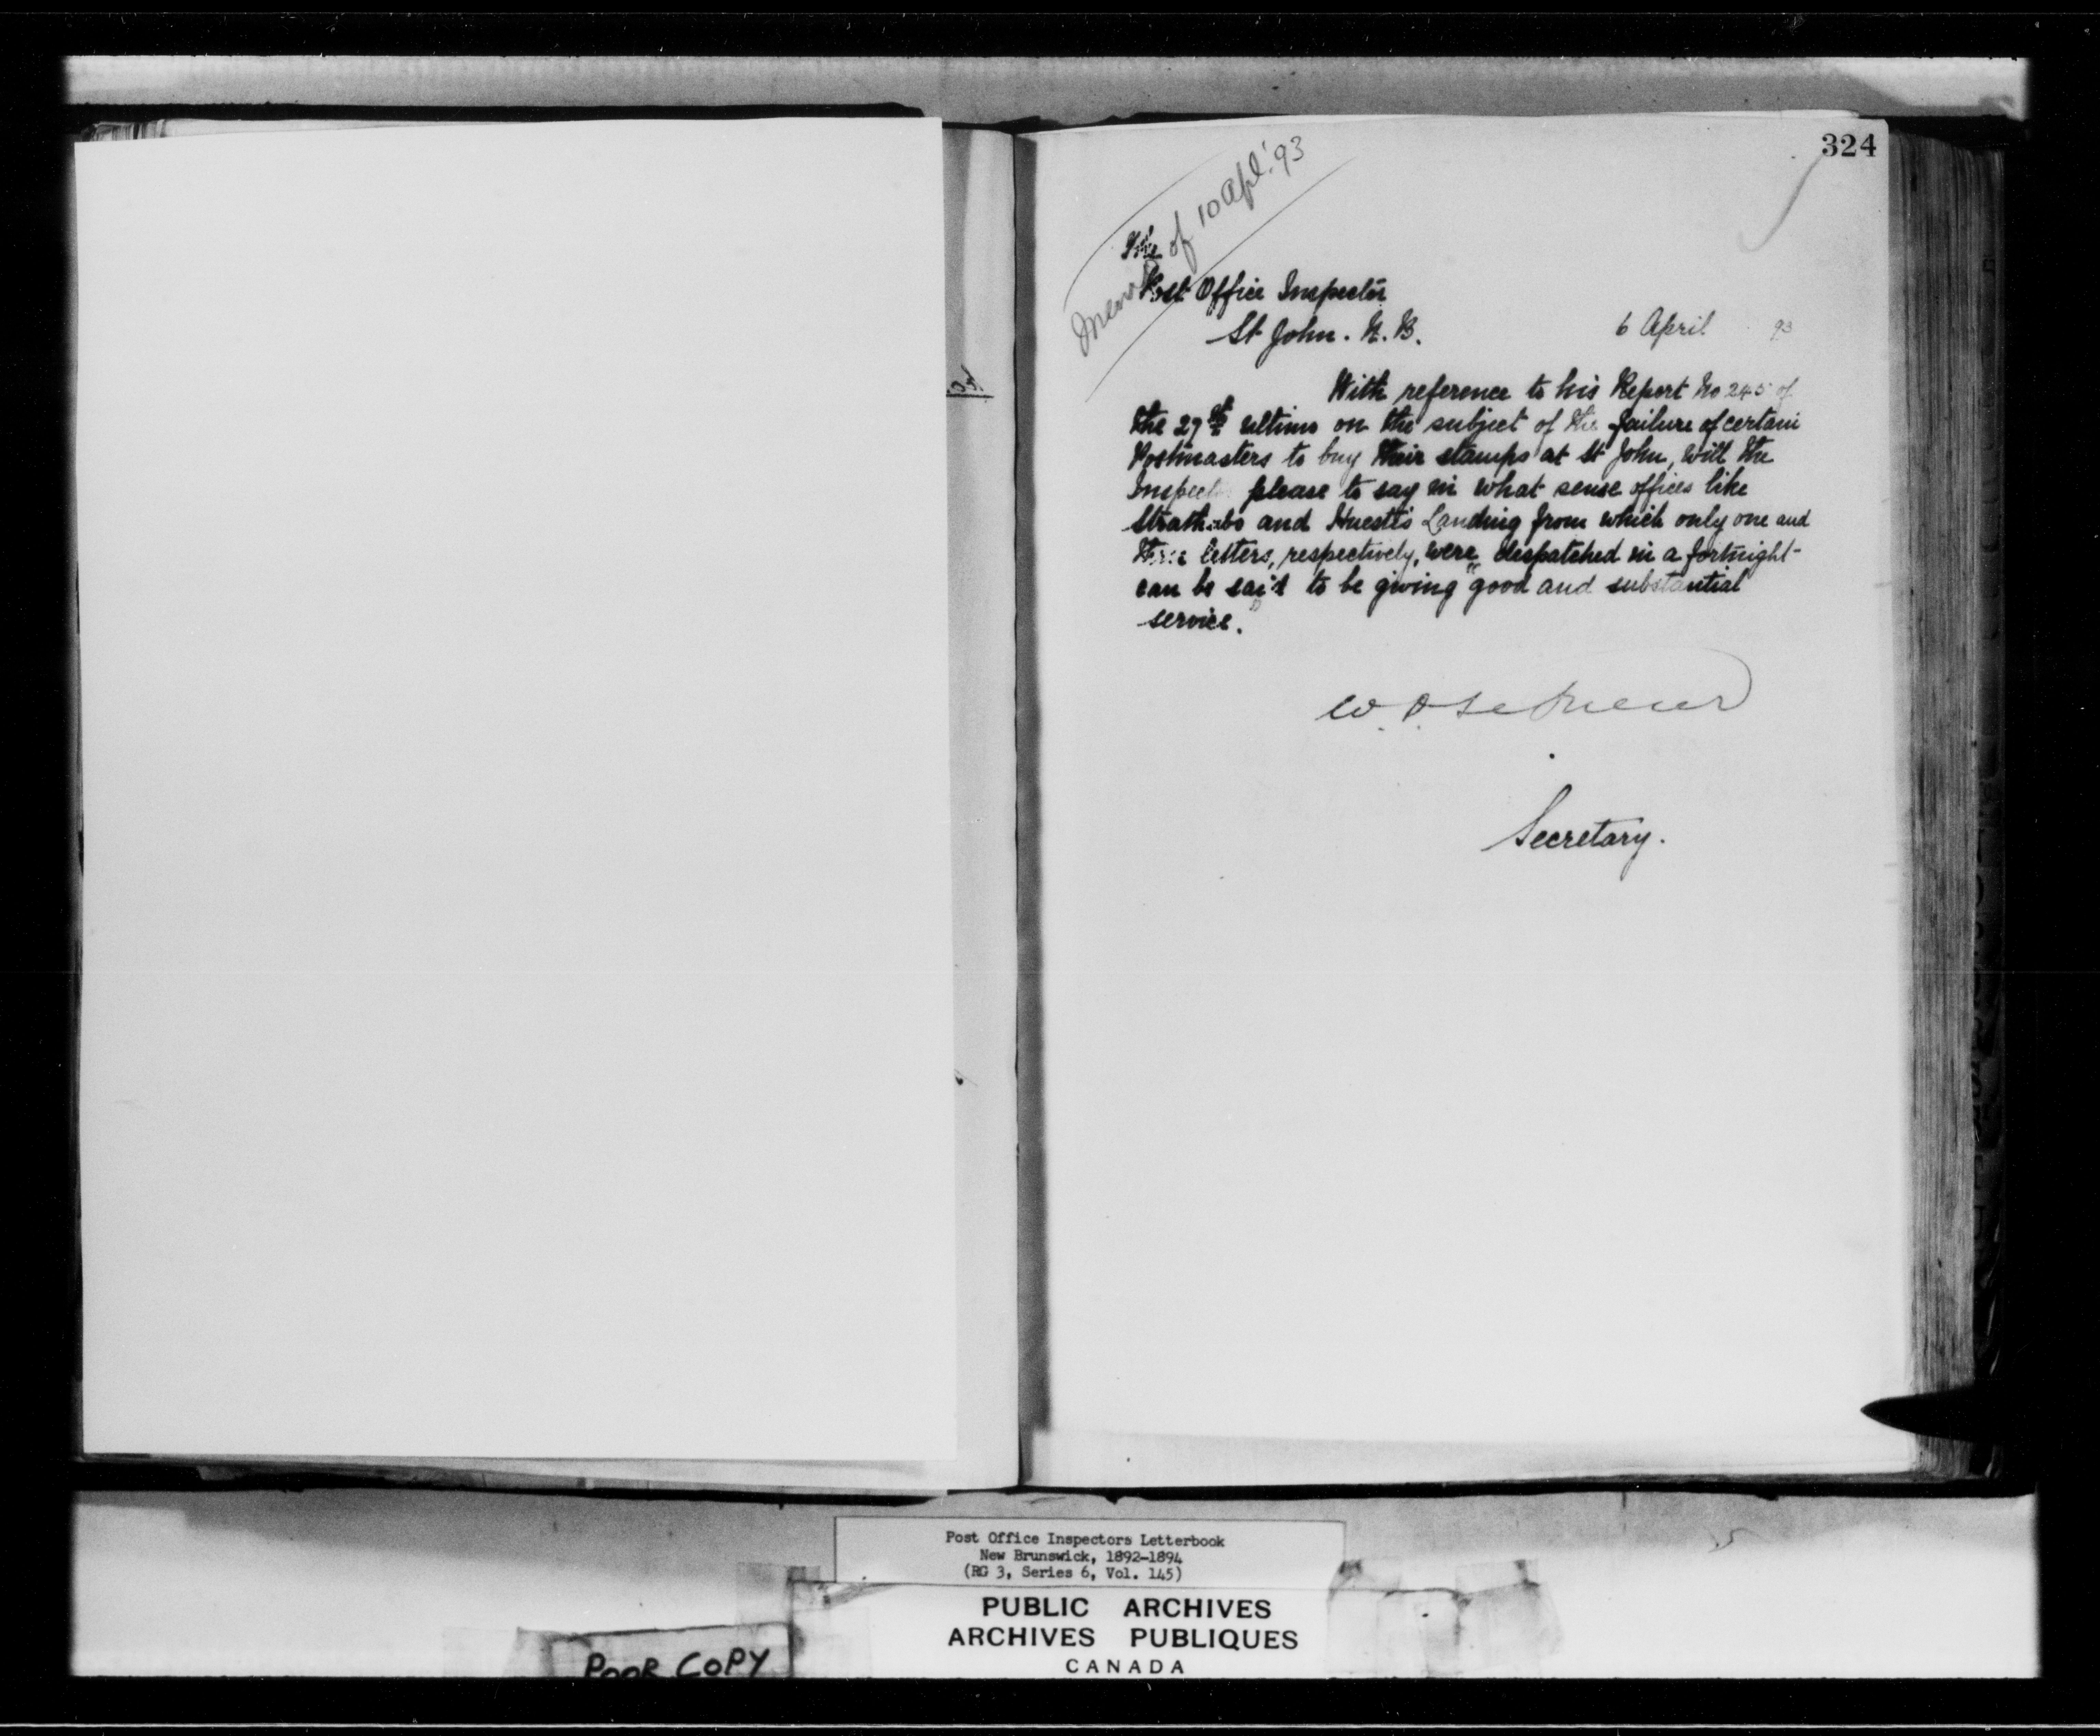 324
Memo of 10 Apl. '93
The
Post Office Inspector
St John. N. B.
6 April 93
With reference to his Report No 245 of
the 29th ultimo on the subject of the failure of certain
Postmasters to buy their stamps at St John, will the
Inspector please to say in what sense offices like
and Huestis Landing from which only one and
three letters, respectively, were despatched in a fortnight
can be said to be giving "good and substantial
service."
W. D. LeSueur
Secretary.
Post Office Inspectors Letterbook
New Brunswick, 1892-1894
(RG 3, Series 6, Vol. 145)
PUBLIC ARCHIVES
ARCHIVES PUBLIQUES
CANADA
POOR COPY